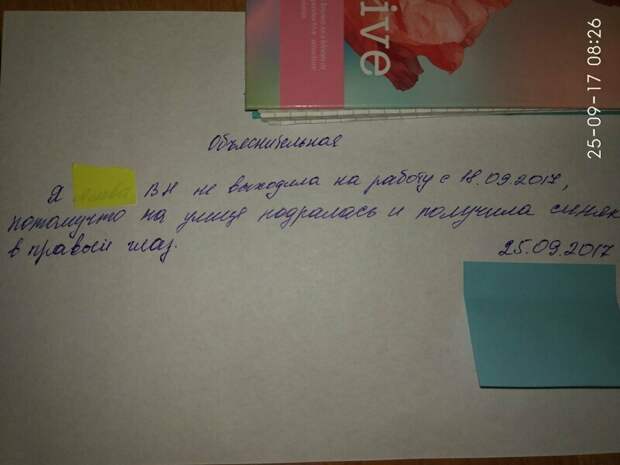 25-09-17 08:26
ive
Объяснительная
Я ВН не выходила на работу с 18.09.2017,
потомучто на улице подралась и получила синяк
в правый глаз.
25.09.2017